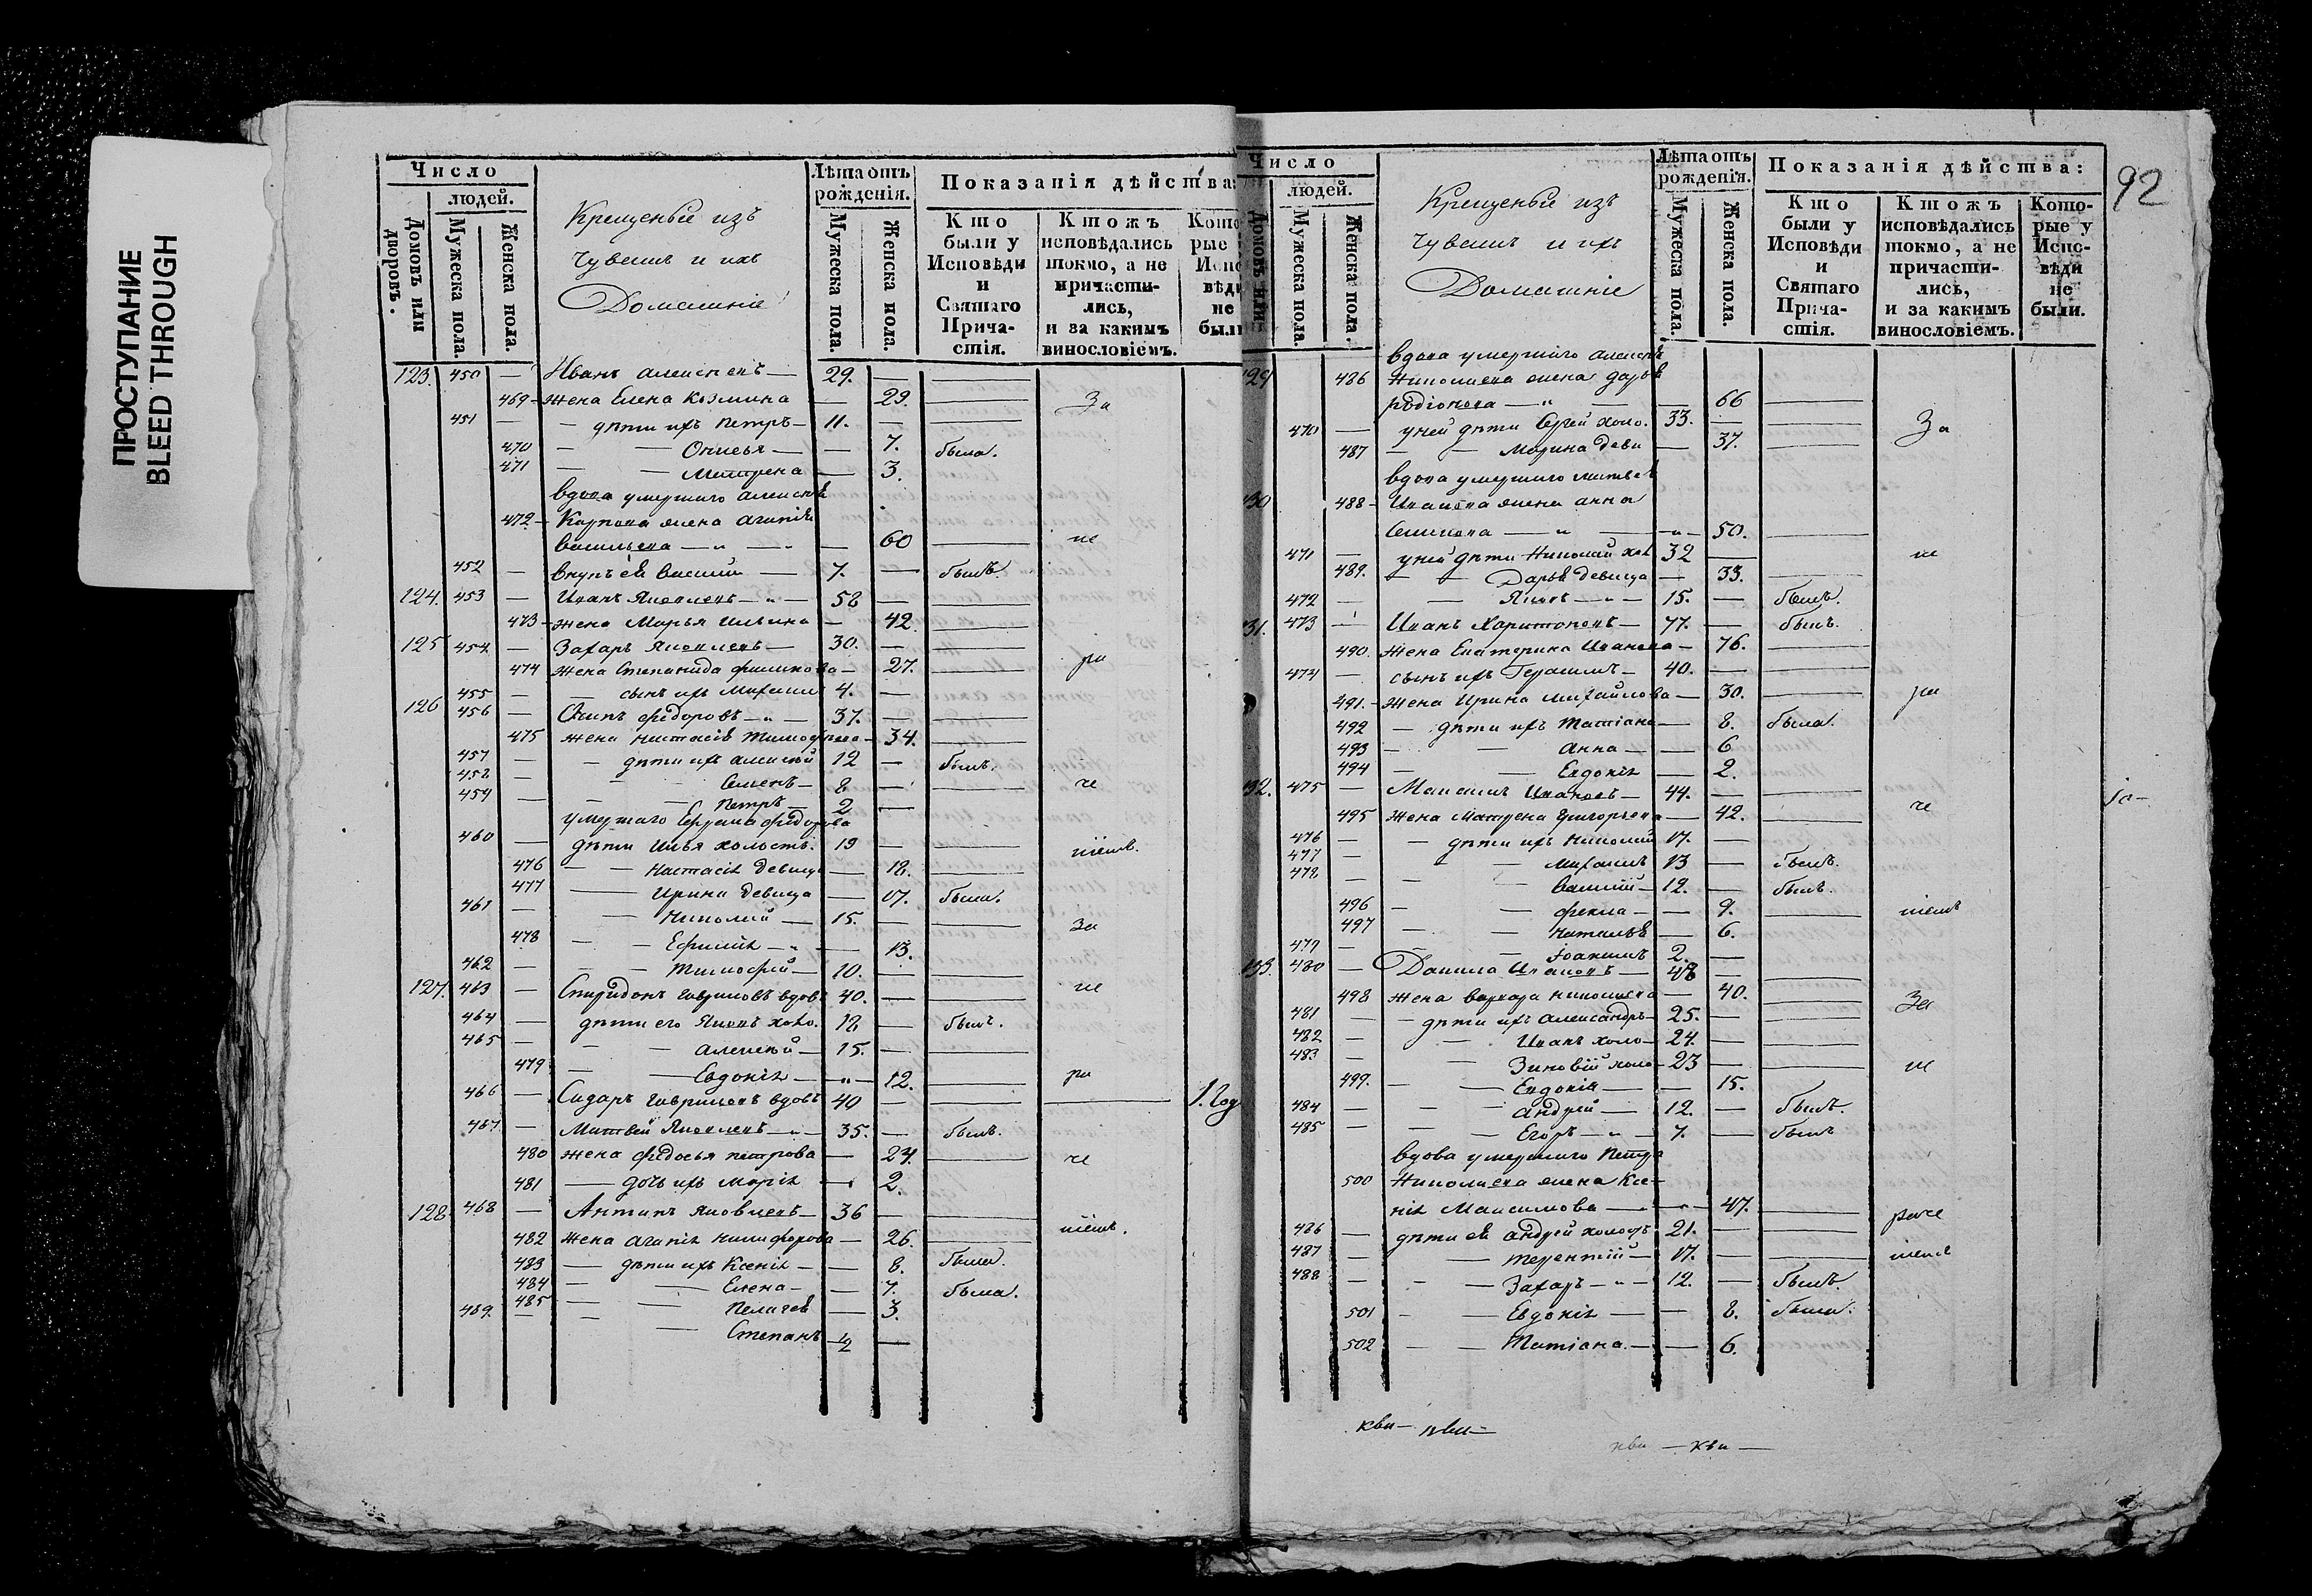 ПРОСТУПАНИЕ
BLEED THROUGH
Число
людей.
Домовъ или дворовъ.
Мужеска пола.
Женска пола.
Крещеные изъ
Чувашъ и ихъ
Домашніе
Лѣта отъ рожденія.
Мужеска пола.
Женска пола.
Показанія дѣйства:
Кто были у Исповѣди и Святаго Причастія.
Ктожъ исповѣдались токмо, а не причастились, и за какимъ винословіемъ.
123. 450 — Иванъ Алексѣевъ — 29.
469 — жена Елена Козмина — 29. За
451 — дѣти ихъ Петръ — 11.
470 — 7. была.
471 — Матрена — 3.
вдова умершаго Алексѣя
472 — Карпова жена Агапія
Васильева — 60 не
452 — внукъ ея Василій — 7. былъ.
124. 453 — Иванъ Яковлевъ — 58
473 — жена Марья Ильина — 42
125 454 — Захаръ Яковлевъ — 30.
474 жена Степанида Филипова — 27. ра
455 — сынъ ихъ Михаилъ 4.
126 456 — Осипъ Федоровъ — 37.
475 жена Настасія Тимофеева — 34.
457 — дѣти ихъ Алексѣй 12 былъ.
458 — Семенъ — 8 че
459 — Петръ — 2
умершаго Ефрема Федорова
460 — дѣти Илья холостъ. 19
476 — Настасія девица — 18.
477 — Ирина девица — 17. была.
461 — Николай — 15. за
478 — Ефимія — 13.
462 — Тимофей — 10.
127. 463 — Спиридонъ Гавриловъ вдовъ 40. не
464 — дѣти его Яковъ холо. 18 былъ.
465 — Алексѣй — 15.
479 — Евдокія — 12. ра
466 — Сидаръ Гавриловъ вдовъ 40 1. Год
467 — Матвей Яковлевъ — 35. былъ.
480 жена Федосья Петрова — 24. че
481 — дочь ихъ Марія — 2.
128. 468 — Антипъ Яковлевъ — 36
482 жена Агапія Никифорова — 26.
483 — дѣти ихъ Ксенія — 8. была.
484 — Елена — 7. была.
485 — Пелагея — 3.
469. — Степанъ — 1/2
Число
людей.
Мужеска пола.
Женска пола.
Крещеные изъ
Чувашъ и ихъ
Домашніе
Лѣта отъ рожденія.
Мужеска пола.
Женска пола.
Показанія дѣйства:
Кто были у Исповѣди и Святаго Причастія.
Ктожъ исповѣдались токмо, а не причастились, и за какимъ винословіемъ.
Которые у Исповѣди не были.
92
вдова умершаго Алексѣя
129 486 Николаева жена Дарья
Родіонова — 66
470 — у ней дѣти Сергей холо. 33. За
487 — Марина деви 37.
вдова умершаго Матвея
130 488 — Иванова жена Анна
Семенова — 50.
471 — у ней дѣти Николай хол 32 не
489. — Дарья девица — 33.
472 — Яковъ — 15. былъ.
131. 473 — Иванъ Харитоновъ — 77. былъ.
490. жена Екатерина Иванова — 76.
474 — сынъ ихъ Герасимъ — 40.
491. — жена Ирина Михайлова — 30. ра
492 — дѣти ихъ Татіана — 8. была.
493 — Анна — 6
494 — Евдокія — 2.
132. 475 — Максимъ Ивановъ — 44.
495 жена Матрена Григорьева — 42. че
476 — дѣти ихъ Николай 17.
477 — Михаилъ 13 былъ.
478 — Василій — 12. былъ.
496 — Фекла — 9.
497 — Наталья — 6.
479 — Іоакимъ 2.
133. 480 — Данила Ивановъ — 48
498 жена Варвара Николаева — 40. За
481 — дѣти ихъ Александръ — 25.
482 — Иванъ холо — 24.
483 — Зиновій холо — 23 не
499. — Евдокія — 15.
484 — Андрей — 12. былъ.
485 — Егоръ — 7. былъ
вдова умершаго Петра
500 Николаева жена Ксе-
нія Максимова — 47.
486 — дѣти ея Андрей холостъ 21.
487 — Терентій — 17.
488 — Захаръ — 12. былъ.
501 — Евдокія — 8. была.
502 — Татіана. — 6.